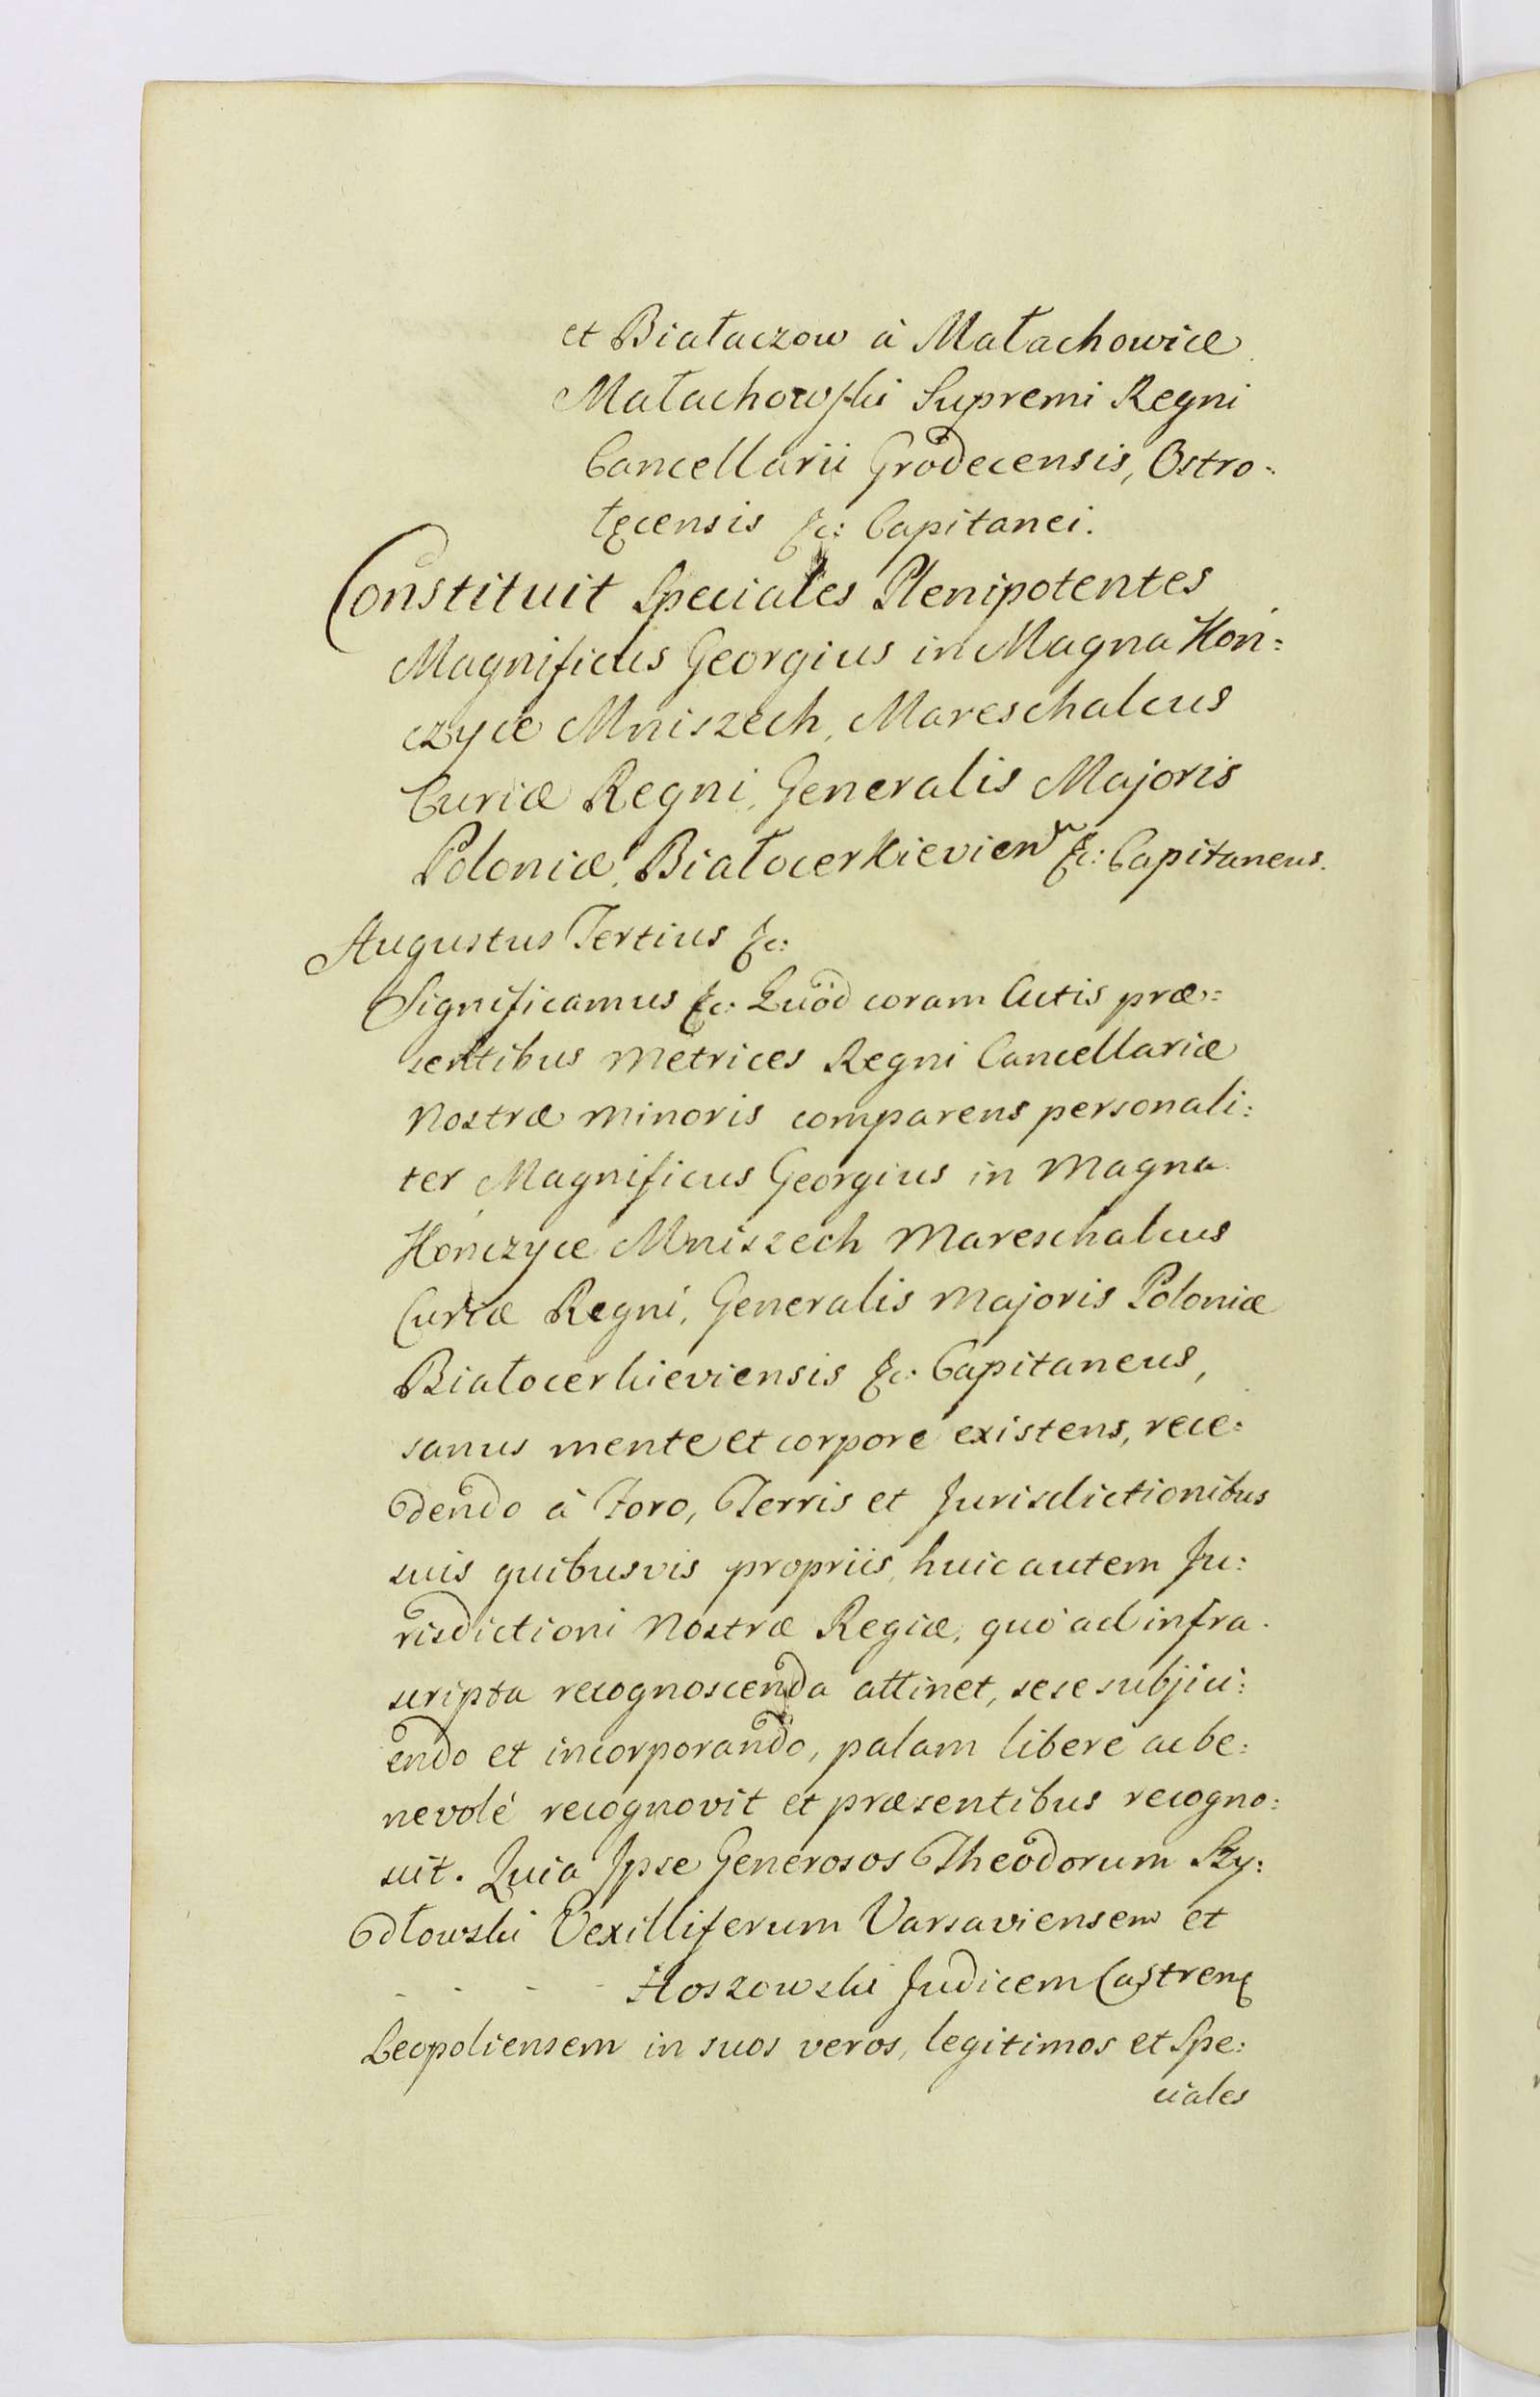 et Białaczow à Małachowice
Małachowski Supremi Regni
Cancellarii Grodecensis, Ostro-
łęcensis &c: Capitanei.
Constituit Speciales Plenipotentes
Magnificus Georgius in Magna Koń:
czyce Mniszech, Mareschalcus
Curiæ Regni, Generalis Majoris
Poloniæ, Białocerkievien &c: Capitaneus.
Augustus Tertius &c:
Significamus &c: Quòd coram Actis præ:
sentibus Metrices Regni Cancellariæ
Nostræ Minoris comparens personali:
ter Magnificus Georgius in Magna
Kończyce Mniszech Mareschalcus
Curiæ Regni, Generalis Majoris Poloniæ
Białocerkieviensis &c: Capitaneus,
sanus mente et corpore existens, rece:
dendo à Foro, Terris et Jurisdictionibus
suis quibusvis propriis, huic autem Ju:
risdictioni Nostræ Regiæ, quò ad infra
scripta recognoscenda attinet, sese subjici:
endo et incorporando, palam liberè ac be:
nevolé recognovit et præsentibus recogno:
scit. Quia Ipse Generosos Theodorum Szy:
dłowski Vexilliferum Varsaviensem et
- - - - Hoszowski Judicem Castren
Leopoliensem in suos veros, legitimos et Spe:
ciales